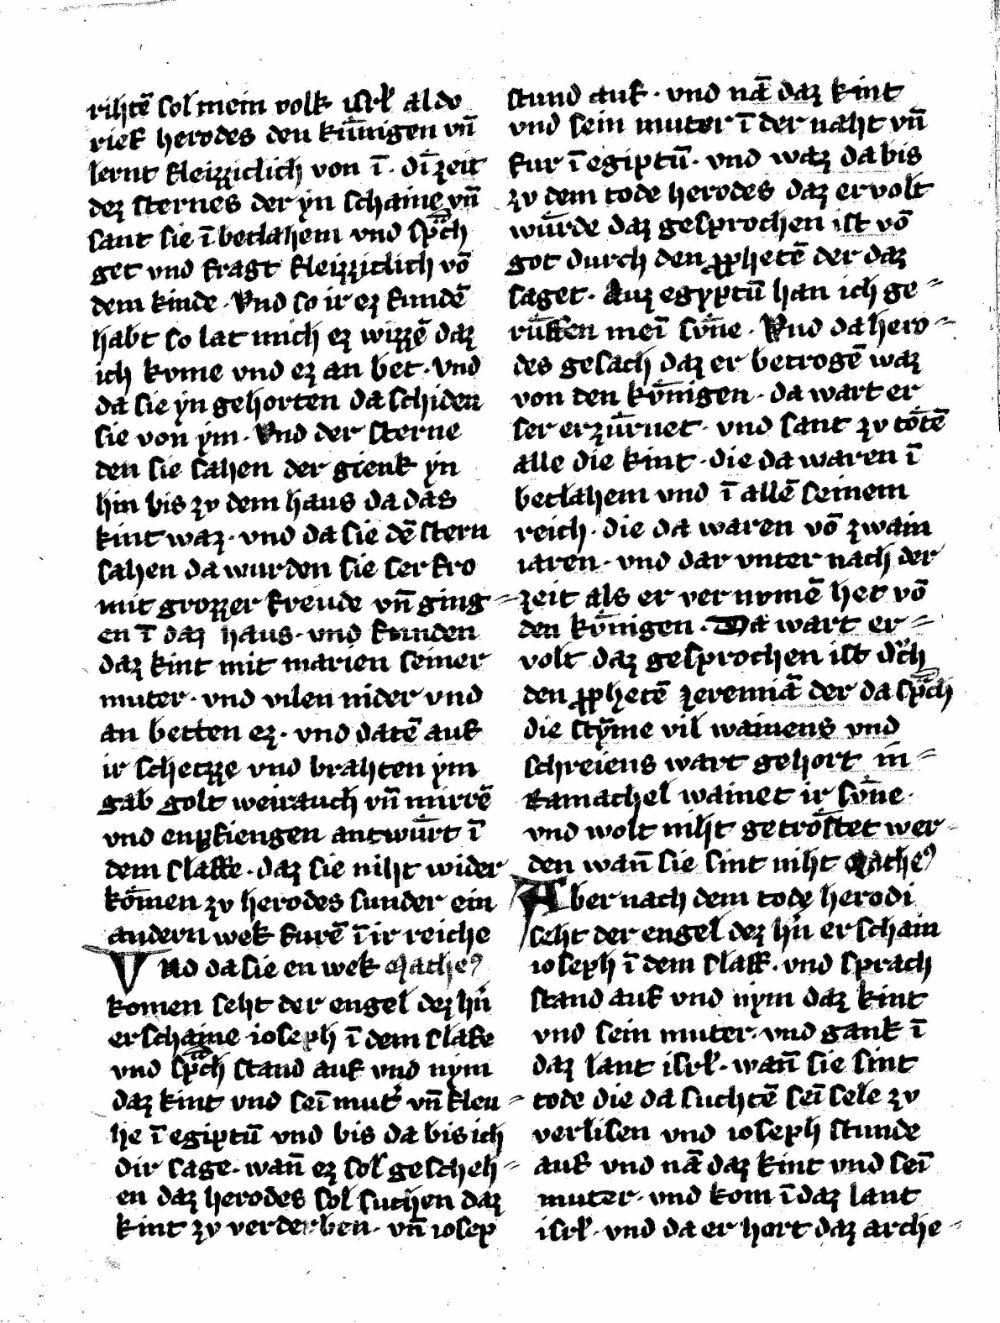 rihtē sol mein volk isrł al do
rief herodes den kūnigen vn̄
lernt fleizziclich von ī · di zeit
dez sternes der yn schaine vn̄
sant sie ī betlahem vnd spͣch
get vnd fragt fleizziclich vō
dem kinde · Vnd so ir ez fundē
habt so lat mich ez wizzē daz
ich kvme vnd ez an bet · Vnd
da sie yn gehorten da schiden
sie von ym · Vnd der sterne
den sie sahen der gienk yn
hin bis zv dem haus da das
kint waz · vnd da sie dē stern
sahen da wurden sie ser fro
mit grozzer freude vn̄ ging
en ī daz haus · vnd funden
daz kint mit marien seiner
muter · vnd vilen nider vnd
an betten ez · vnd datē auf
ir schetzze vnd brahten ym
gab golt weirauch vn̄ mirrē
vnd enpfiengen antwu̇rt ī
dem slaffe · daz sie niht wider
kȯmen zv herodes sunder ein
andern wek furē ī ir reiche
Vnd da sie en wek Mathe⁹
komen seht der engel dez hͥn
erschaine ioseph ī dem slafe
vnd spͣch stand auf vnd nym
daz kint vnd sei mutʾ vn̄ fleu
he ī egiptū vnd bis da bis ich
dir sage · wan̄ ez sol gescheh=
en daz herodes sol suchen daz
kint zv verderben · vn̄ iosep
stund auf · vnd nā daz kint
vnd sein muter ī der naht vn̄
fur ī egiptū · vnd waz da bis
zv dem tode herodes daz er volt
wu̇rde daz gesprochen ist vō
got durch den pphetē der daz
saget · Auz egyptū han ich ge=
ru̇ffen mei svne · Vnd da hero=
des gesach daz er betrogē waz
von den kȯnigen · da wart er
ser erzu̇rnet · vnd sant zv tȯtē
alle die kint · die da waren ī
betlahem vnd ī allē seinem
reich · die da waren vō zwain
iaren · vnd dar vnter nach der
=zeit als er ver nvmē het vō
den kȯnigen · Da wart er=
volt daz gesprochen ist dͮch
den pphetē zeremiā der da spͣch
die styme vil wainens vnd
schreiens wart gehort in=
Ramachel wainet ir svne ·
vnd wolt niht getrȯstet wer=
den wan̄ sie sint niht Mathe⁹
Aber nach dem tode herodi
seht der engel dez hͥn erschain
ioseph ī dem slaff · vnd sprach
stand auf vnd nym daz kint
vnd sein muter · vnd gank ī
daz lant isrł · wan̄ sie sint
=tode die da suchtē sei sele zv
verlisen vnd ioseph stunde
auf vnd nā daz kint vnd sei
muter · vnd kom ī daz lant
isrł · vnd da er hort daz arche=